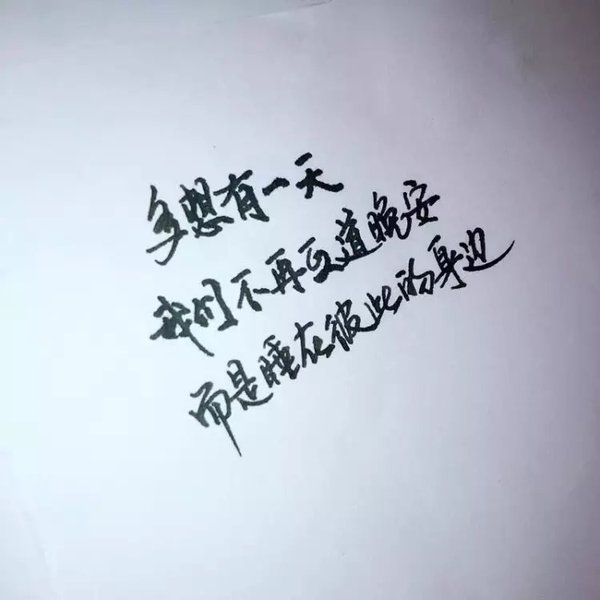 多想有一天
我们不再互道晚安
而是睡在彼此的身边